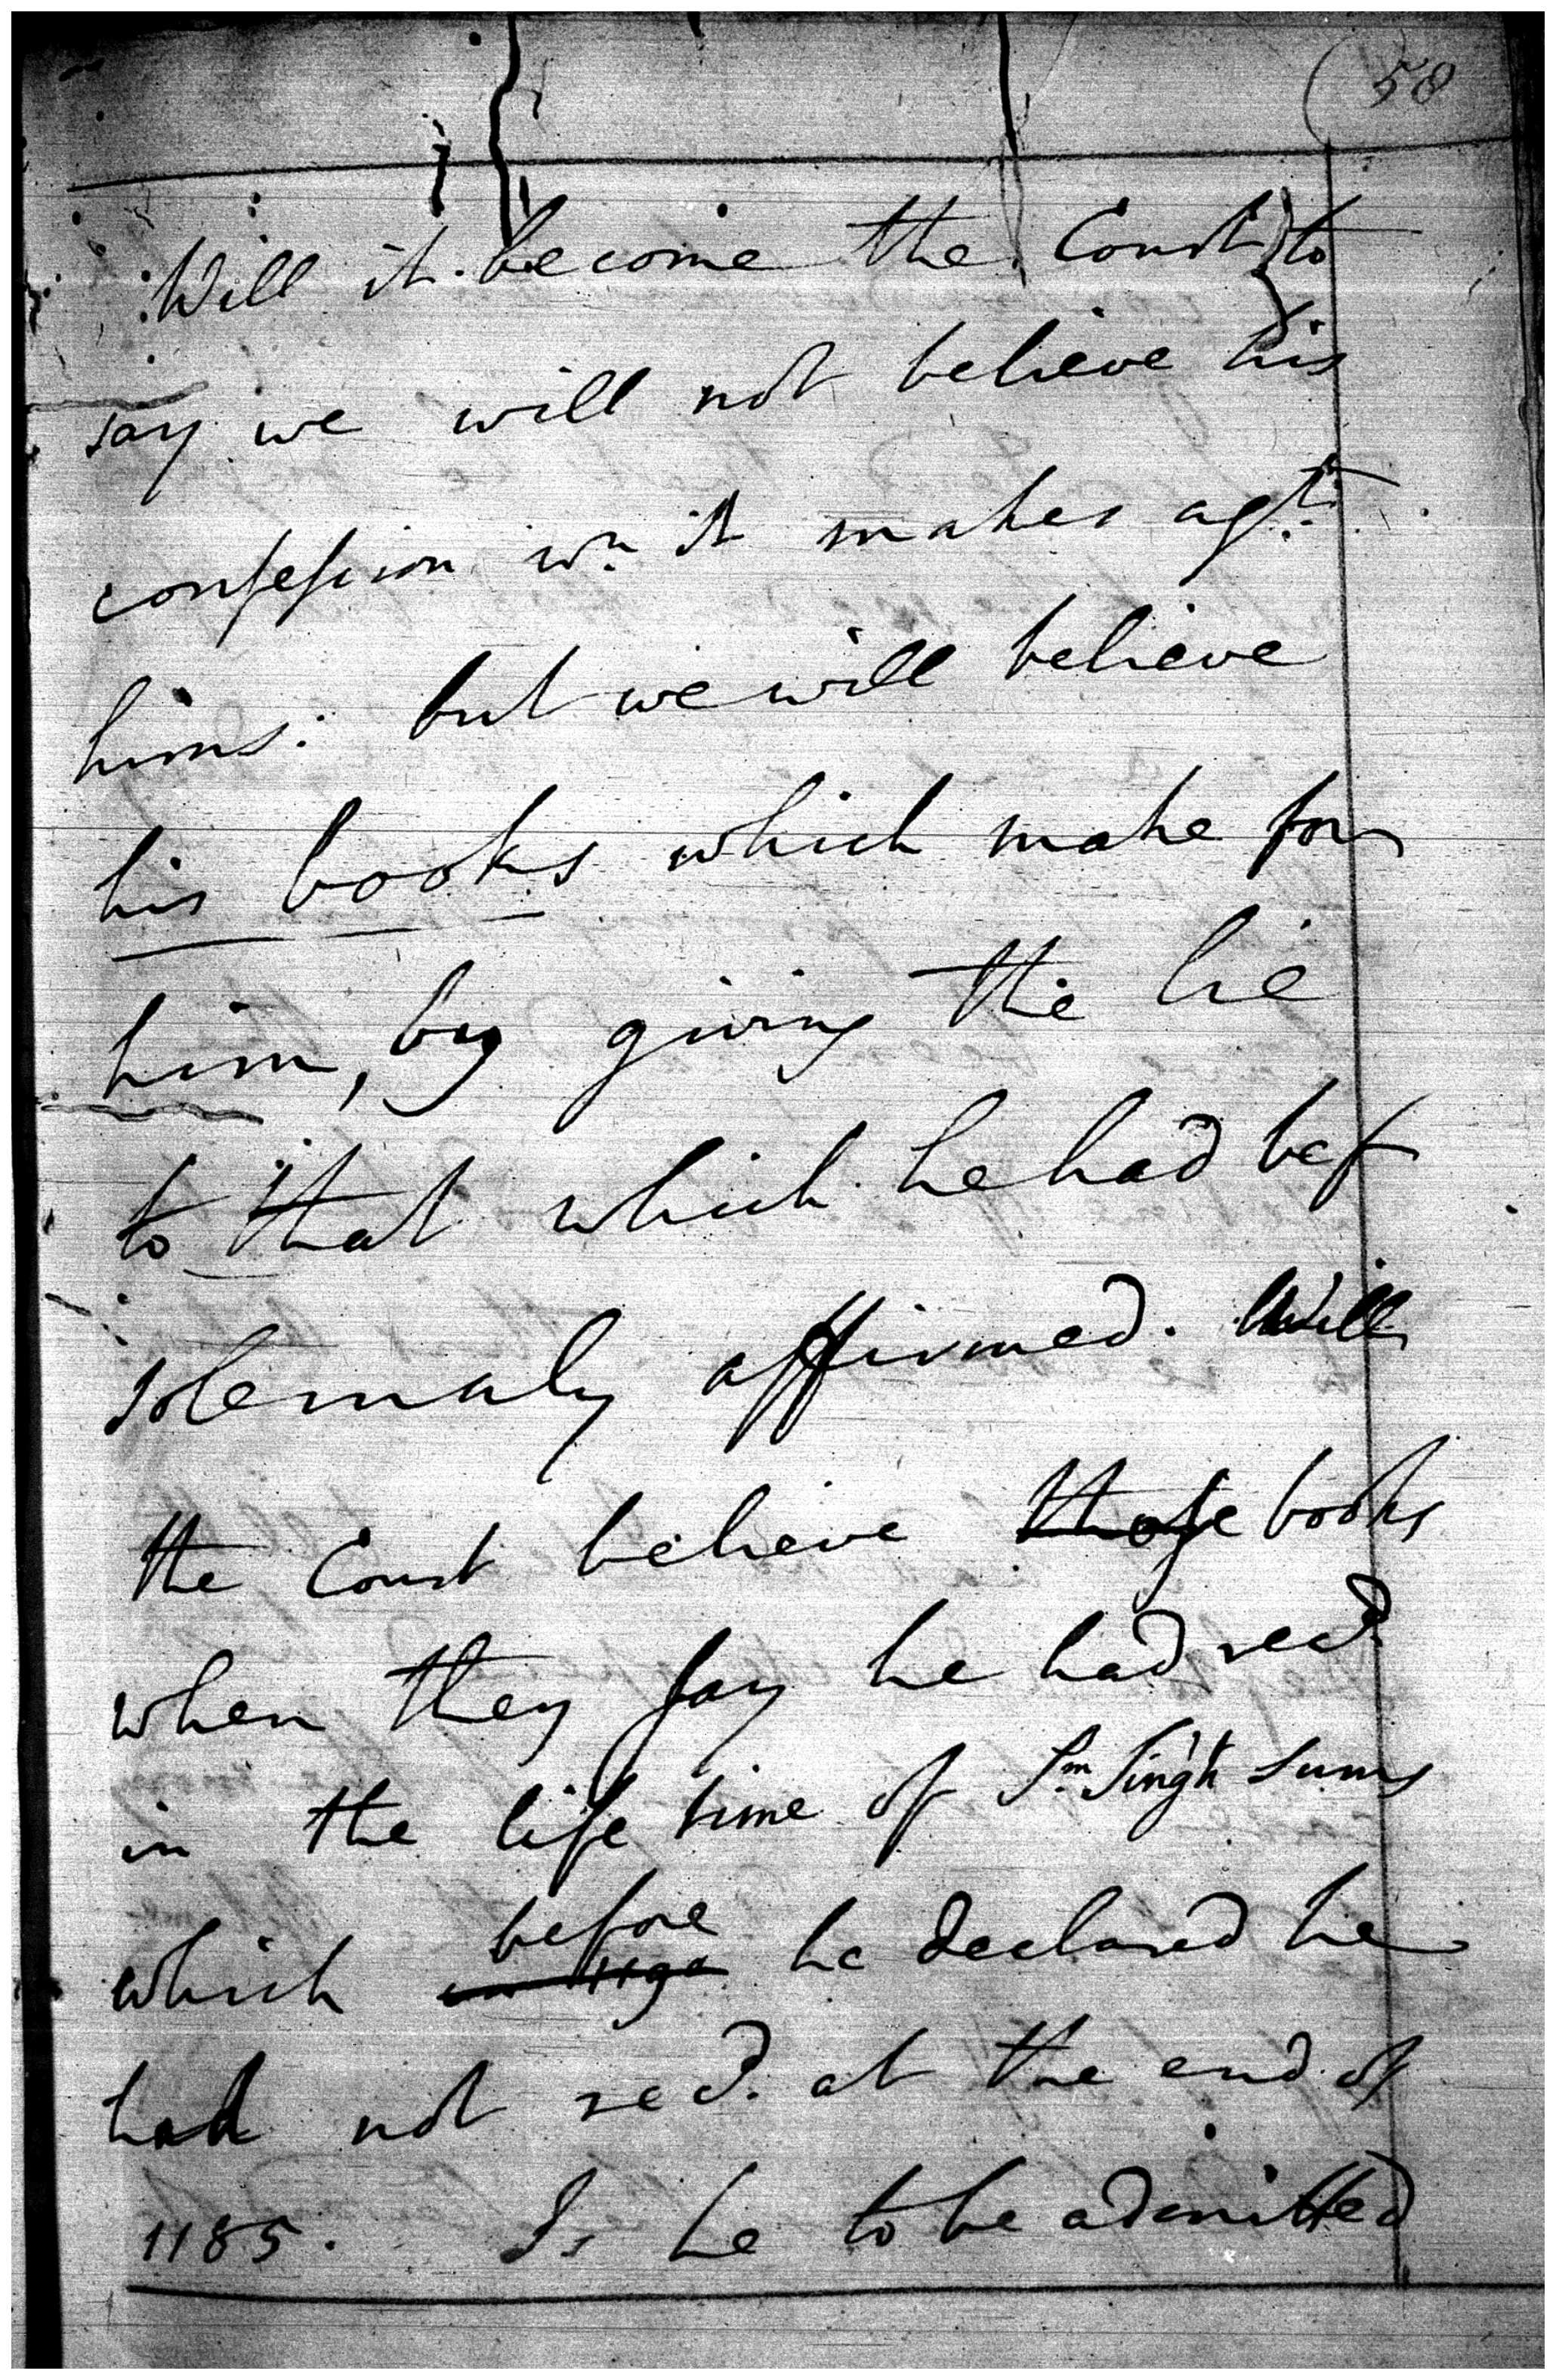 58
Will it become the Court to
say we will not believe his
confession wn. it makes agt.
him: but we will believe
his books which make for
him, by giving the lie
to that which he had bef
solemnly affirmed. Will
the Court believe those books
when they say he had recd.
in the life time of Sm Singh sums
which before he declared he
had not recd. at the end of
1185. Is he to be admitted